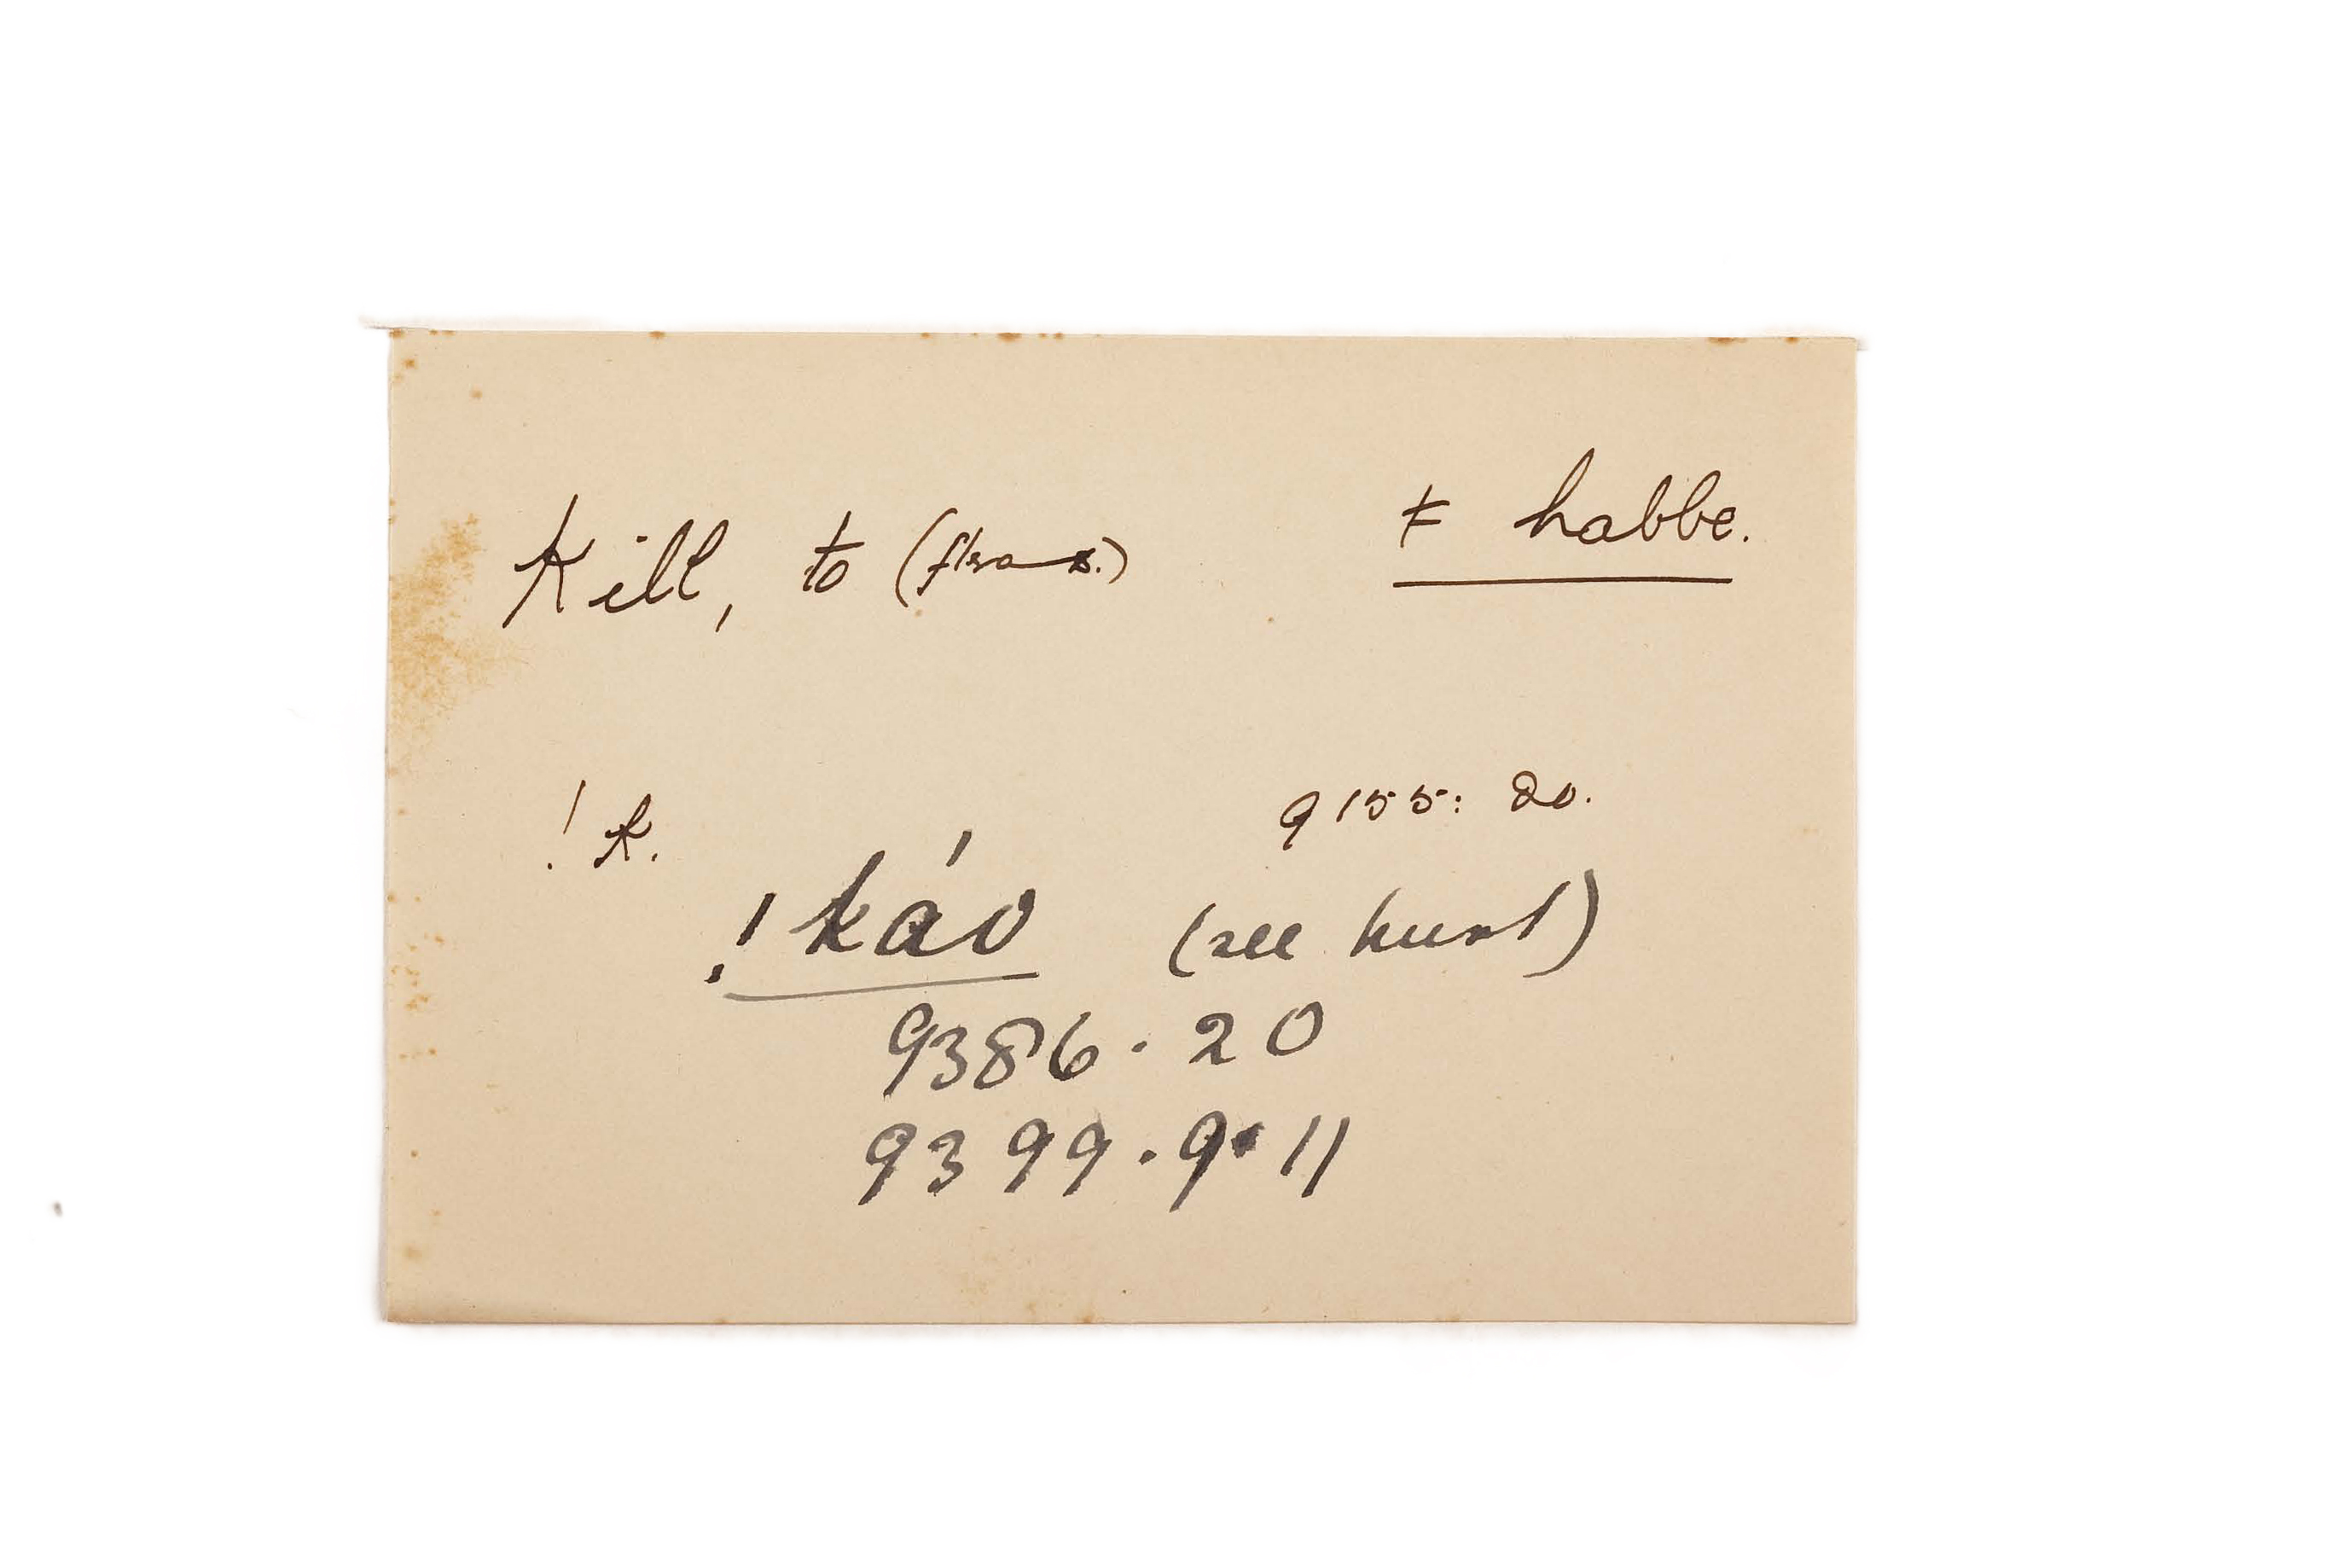 Kill, to (trans.) ǂ habbe.
!k. 9155: 20.
!káo (see hunt)
9386. 20
9399. 9. 11